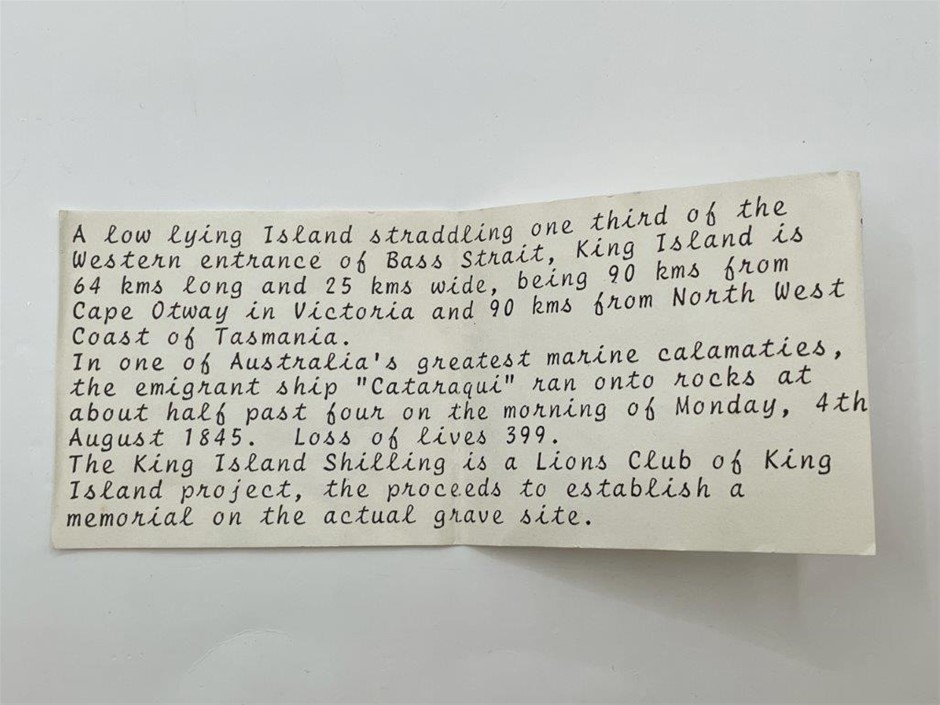 A low lying Island straddling one third of the
Western entrance of Bass Strait, King Island is
64 kms long and 25 kms wide, being 90 kms from
Cape Otway in Victoria and 90 kms from North West
Coast of Tasmania.
In one of Australia's greatest marine calamaties,
the emigrant ship "Cataraqui" ran onto rocks at
about half past four on the morning of Monday, 4th
August 1845.  Loss of lives 399.
The King Island Shilling is a Lions Club of King
Island project, the proceeds to establish a
memorial on the actual grave site.